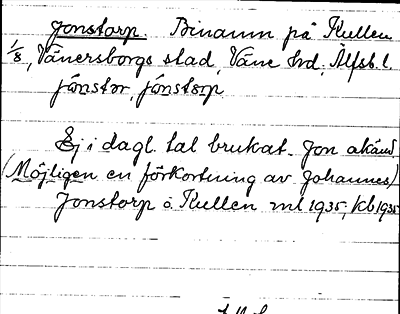 Jonstorp. Binamn på Kullen
1/8, Vänersborgs stad, Väne hd. Älfsb. l.
jónstor, jónstorp
Ej i dagl. tal brukat. Jon okänd
(Möjligen en förkortning av Johannes)
Jonstorp å Kullen ml 1935, kb 1935